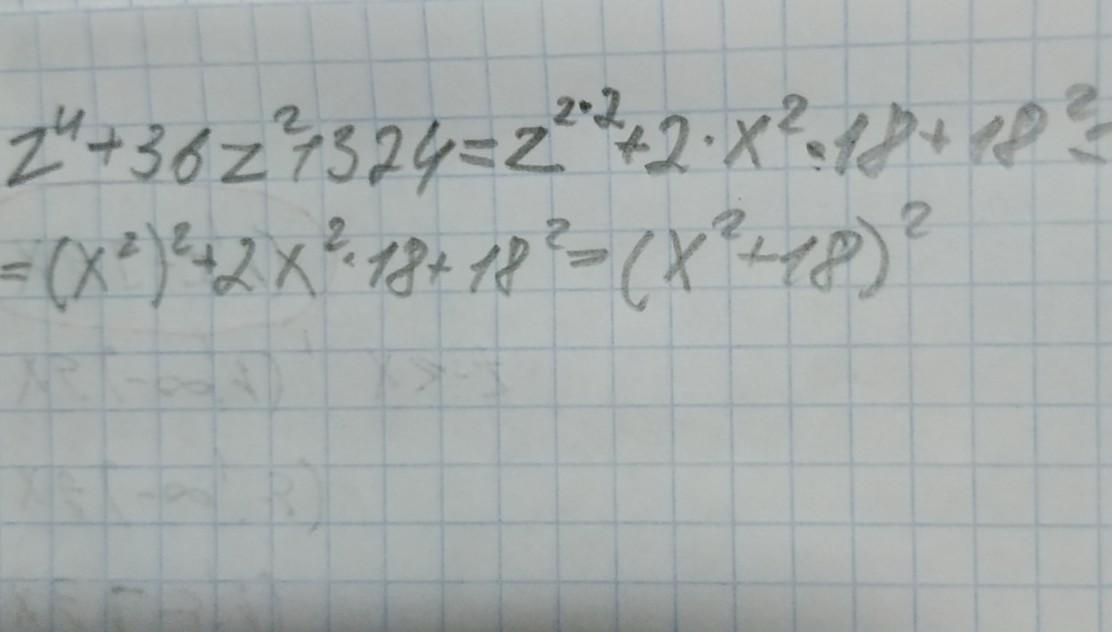 z⁴+36z²+324=z²·²+2·x²·18+18²=
=(x²)²+2x²·18+18²=(x²+18)²